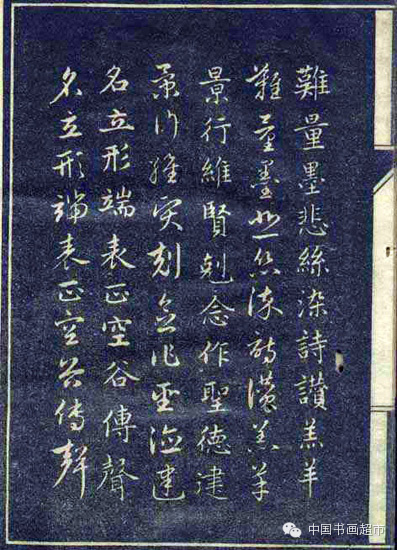 難量墨悲絲染詩讚羔羊
難量墨悲絲染詩讚羔羊
景行維賢剋念作聖德建
景行維賢剋念作聖德建
名立形端表正空谷傳聲
名立形端表正空谷傳聲
中国书画超市